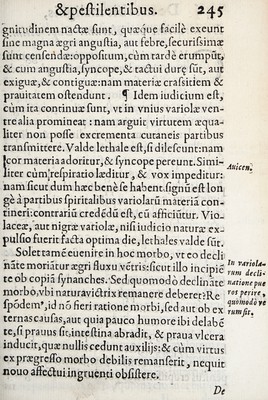 & pestilentibus. 245
gnitudinem nactæ sunt, quæque facilè exeunt
sine magna ægri angustia, aut febre, securissimæ
sunt censendæ: oppositum, cùm tardè erumpũt,
& cum angustia, syncope, & tactui duræ sũt, aut
exiguæ, & contiguæ: nam materiæ crassitiem &
prauitatem ostendunt. ¶ Idem iudicium est,
cùm ita continuæ sunt, vt in vnius variolæ ven-
tre alia promineat: nam arguit virtutem æqua-
liter non posse excrementa cutaneis partibus
transmittere. Valde lethale est, si delitescunt: nam
cor materia adoritur, & syncope pereunt. Simi-
liter cùm respiratio læditur, & vox impeditur:
nam sicut dum hæc benè se habent. signũ est lon
gè à partibus spiritalibus variolarũ materiã con-
tineri: contrariũ credẽdũ est, cũ afficiũtur. Vio-
laceæ, aut nigræ variolæ, nisi iudicio naturæ ex-
pulsio fuerit facta optima die, lethales valde sũt.
Solet tamẽ euenire in hoc morbo, vt eo decli
nãte moriãtur ægri fluxu vẽtris: sicut illo incipiẽ
te ob copiã synanches. Sed quomodo declinãte
morbo, vbi natura victrix remanere deberet? Re
spõdem⁹, id nõ fieri ratione morbi, sed aut ob ex
ternas causas, aut quia pauco humore ibi delabẽ
te, si prauus sit. intestina abradit, & praua vlcera
inducit, quæ nullis cedunt auxilijs: & cùm virtus
ex prægresso morbo debilis remanserit, nequit
nouo affectui ingruenti obsistere.
De
Auicen.
In variola-
rum decli-
natione pue
ros perire,
quomodò ve
rum sit,